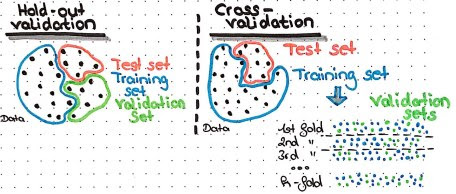 Hold-out
validation
Test set
Training
set
Validation
Set
Data
Cross-
validation
Test set
Training set
Data
Validation
sets
1st fold
2nd "
3rd "
...
k-fold